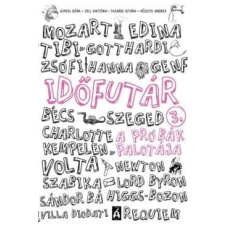 GIMESI DÓRA • JELI VIKTÓRIA • TASNÁDI ISTVÁN • VÉSZITS ANDREA
MOZART EDINA
TIBI GOTTHARDI
ZSÓFI HANNA GENF
IDŐFUTÁR
BÉCS SZEGED 3.
CHARLOTTE A PRÓBÁK
KEMPELEN PALOTÁJA
VOLTA NEWTON
SZABIKA LORD BYRON
SÁNDOR BÁ HIGGS-BOZON
VILLA DIODATI A REQUIEM